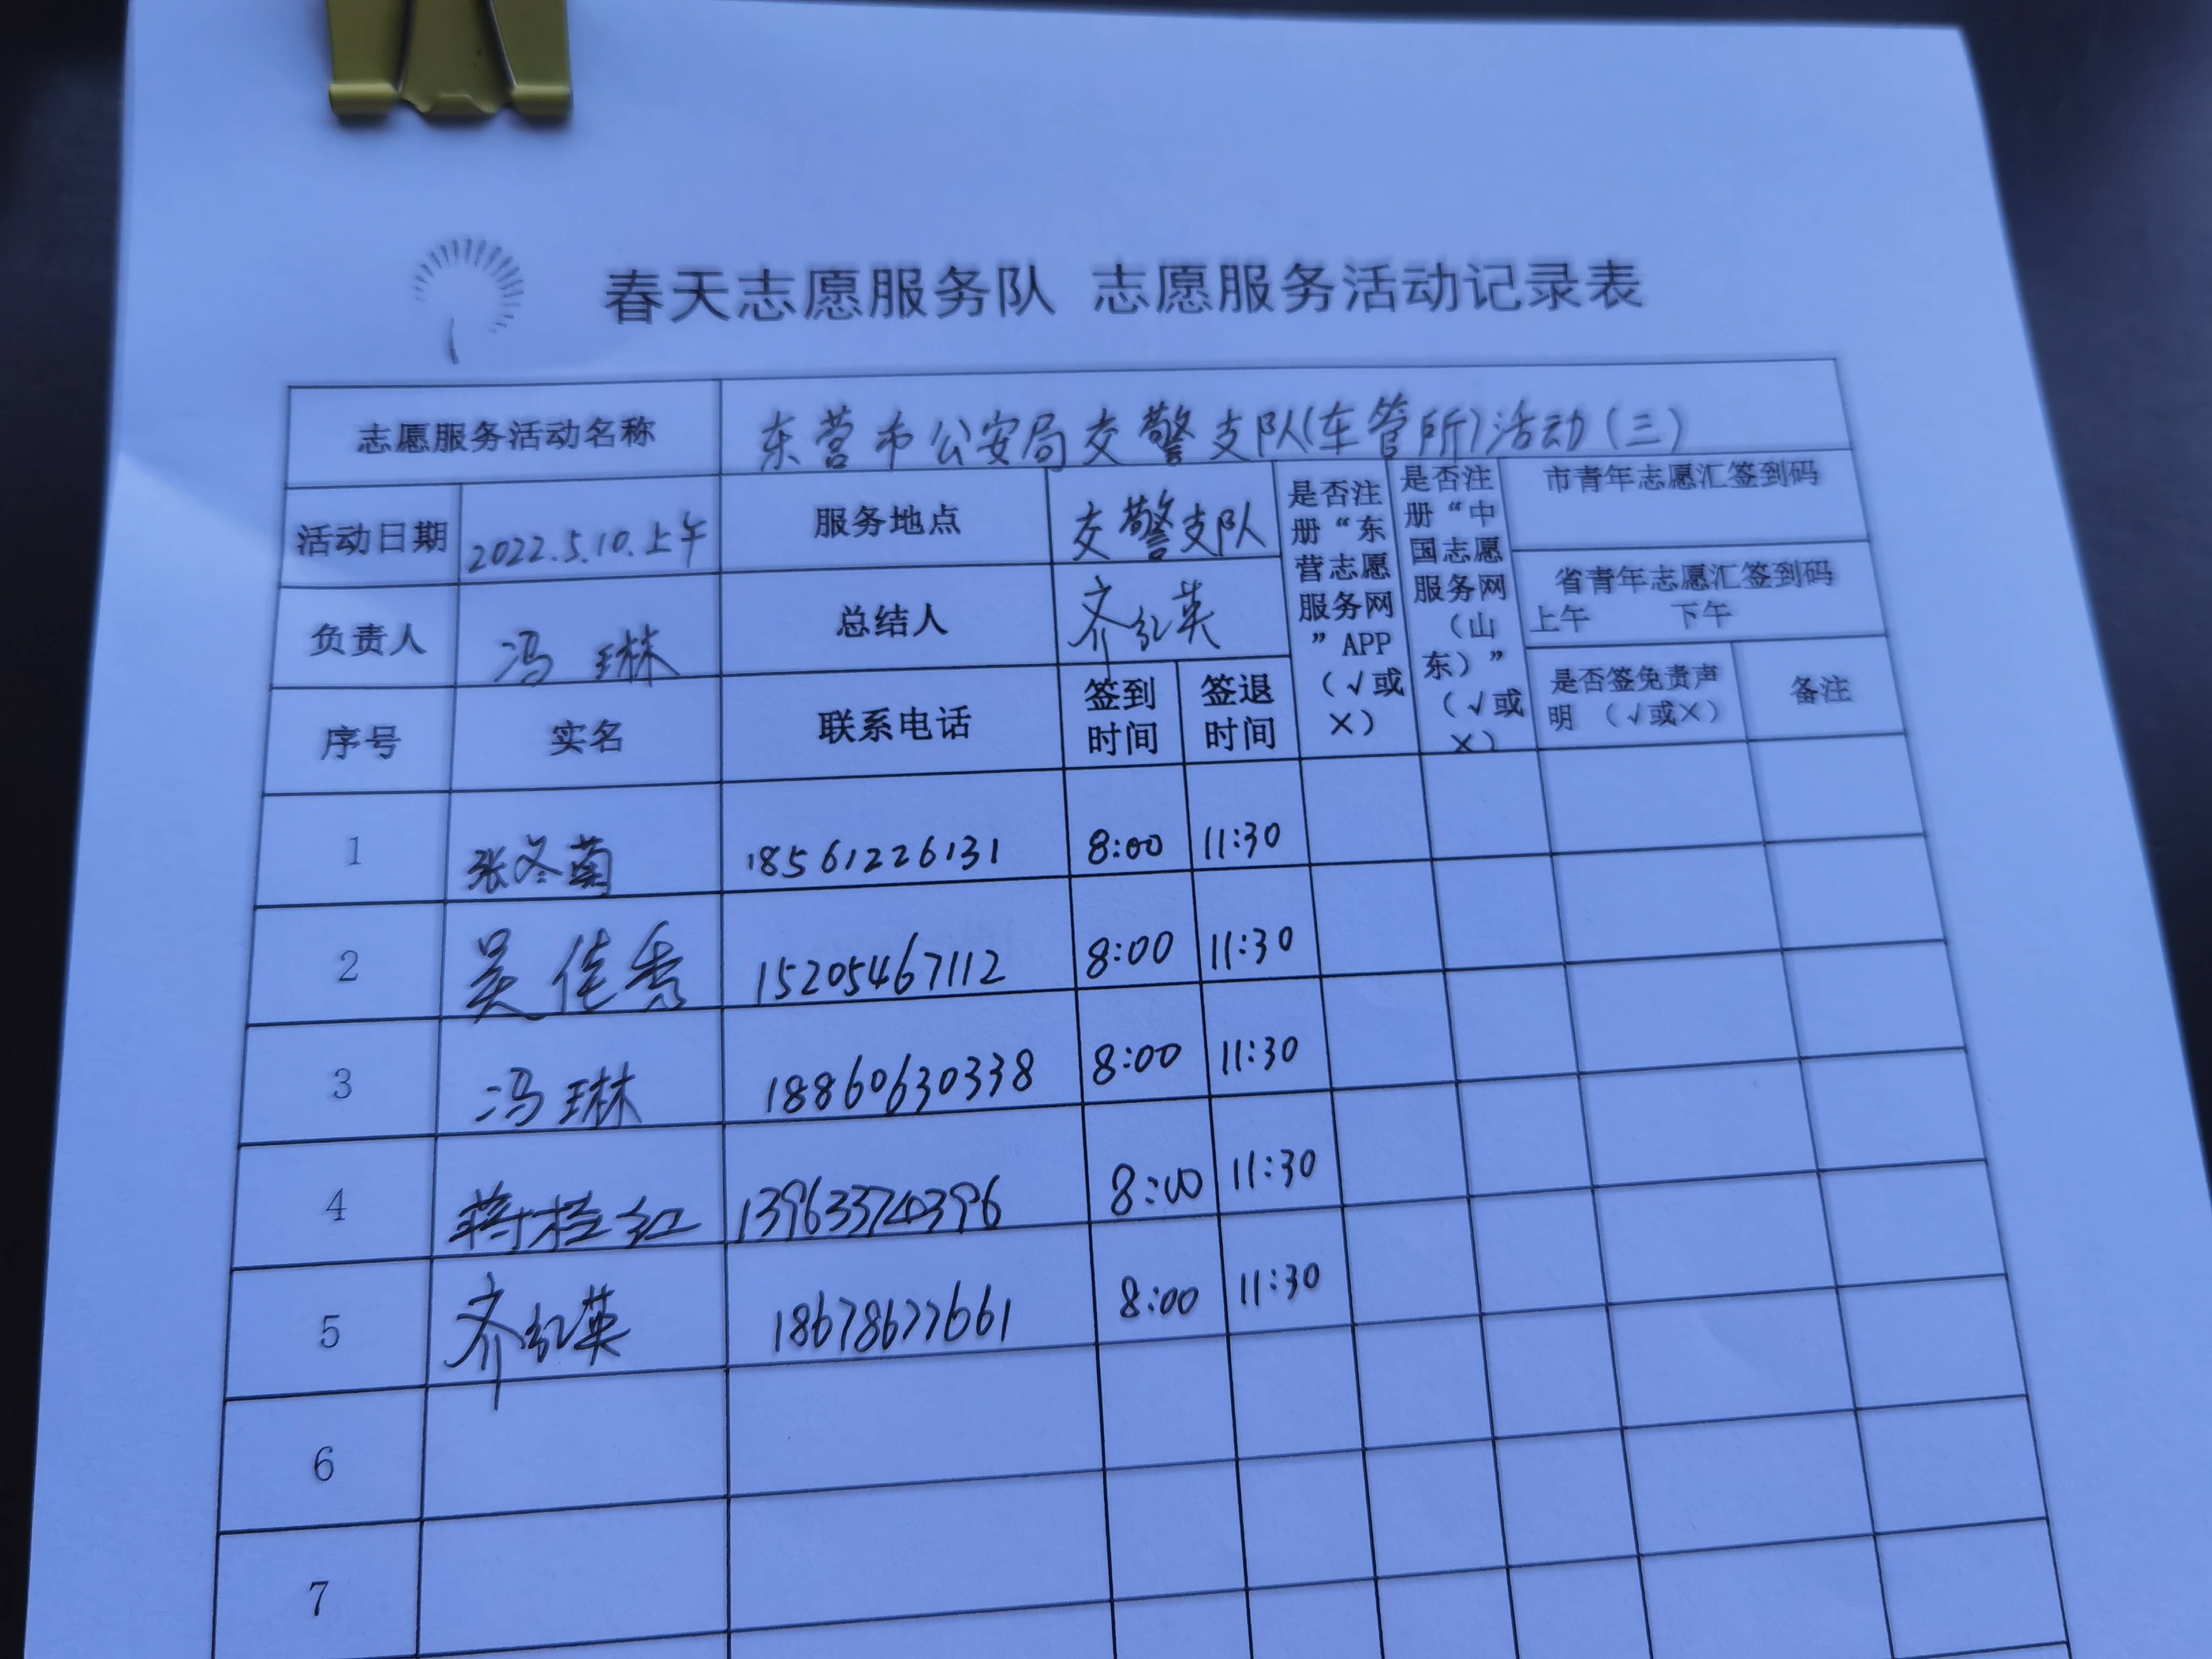 春天志愿服务队 志愿服务活动记录表
志愿服务活动名称 东营市公安局交警支队(车管所)活动(三)
活动日期 2022.5.10.上午 服务地点 交警支队
负责人 冯琳 总结人 齐红英
是否注
册“东
营志愿
服务网
”APP
(√或
×)
是否注
册“中
国志愿
服务网
(山
东)”
(√或
×)
市青年志愿汇签到码
省青年志愿汇签到码
上午 下午
是否签免责声
明 (√或×)
备注
序号 实名 联系电话 签到
时间 签退
时间
1 张冬菊 18561226131 8:00 11:30
2 吴佳秀 15205467112 8:00 11:30
3 冯琳 18860630338 8:00 11:30
4 蒋桂红 13963374396 8:00 11:30
5 齐红英 18678677661 8:00 11:30
6
7